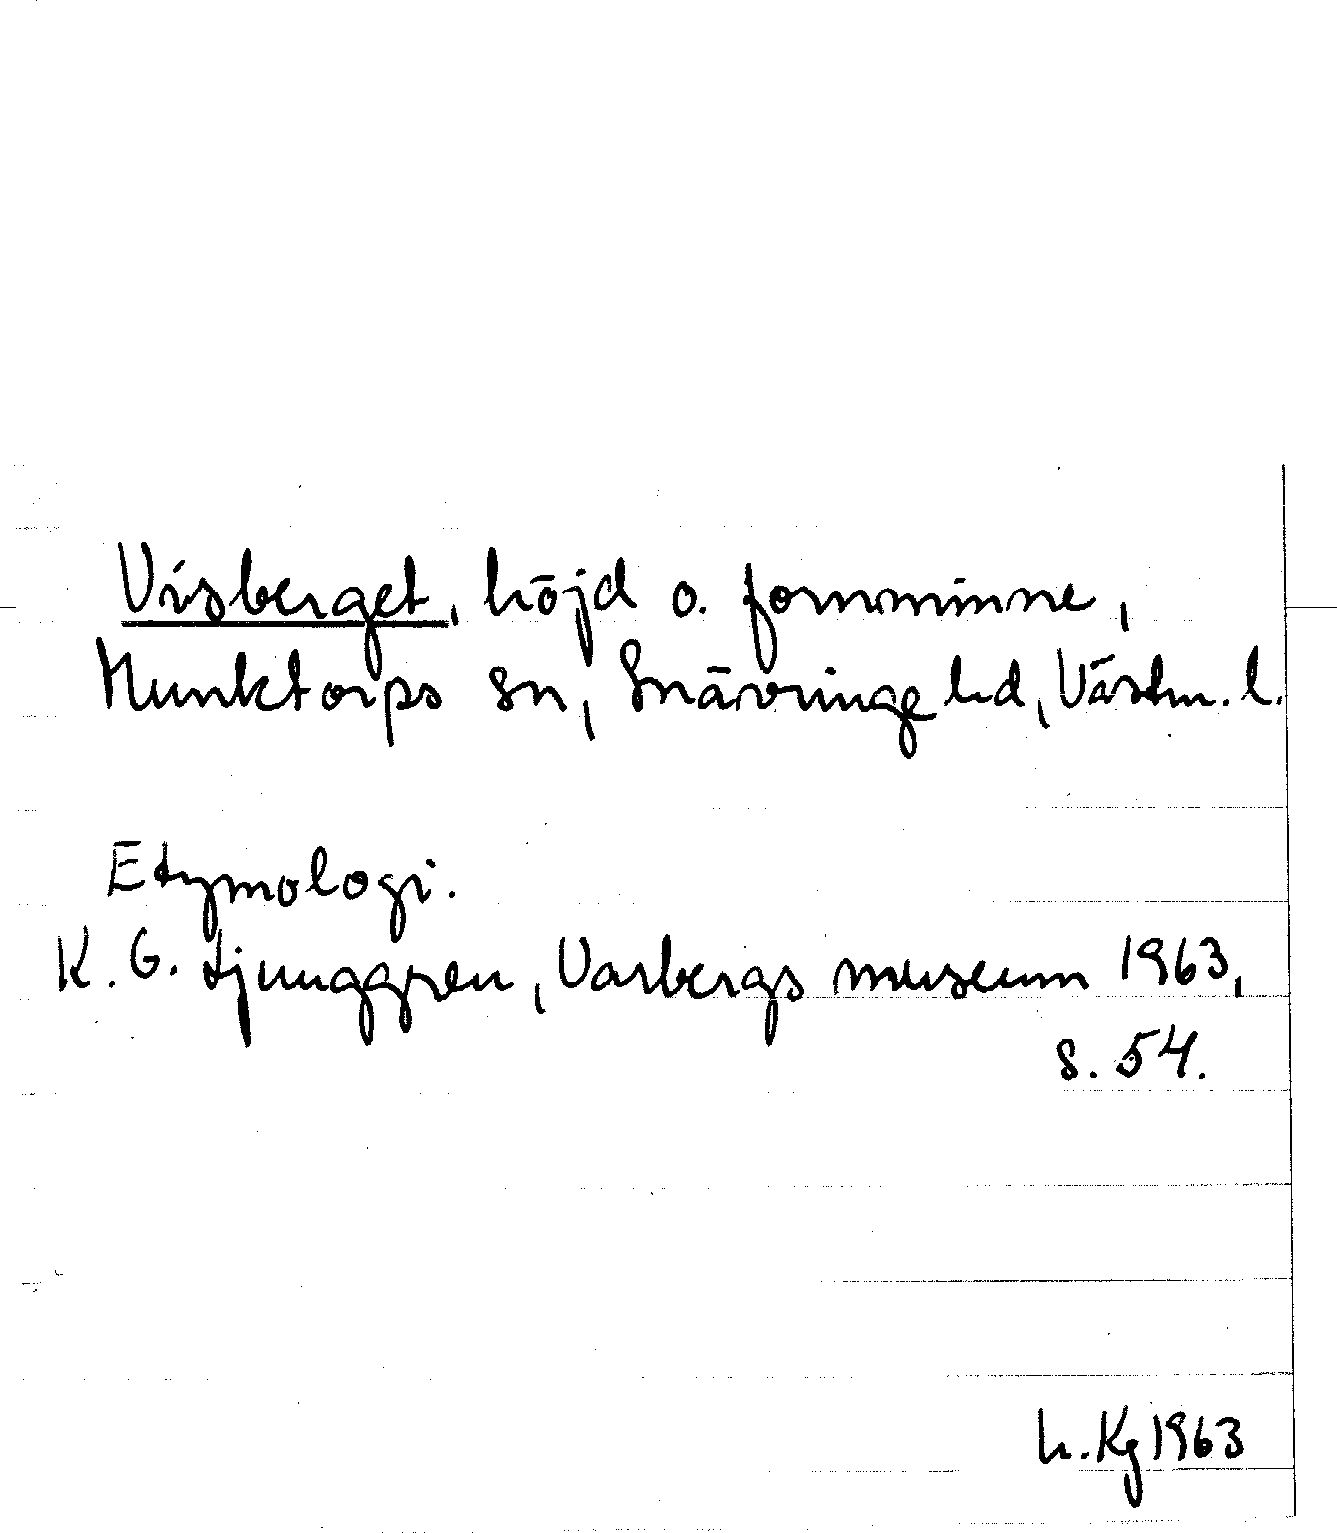 Visberget, höjd o. fornminne,
Munktorps sn, Snävringe hd, Västm. l.
Etymologi.
K. G. Ljunggren, Varbergs museum 1963,
s. 54.
h. Kg 1963